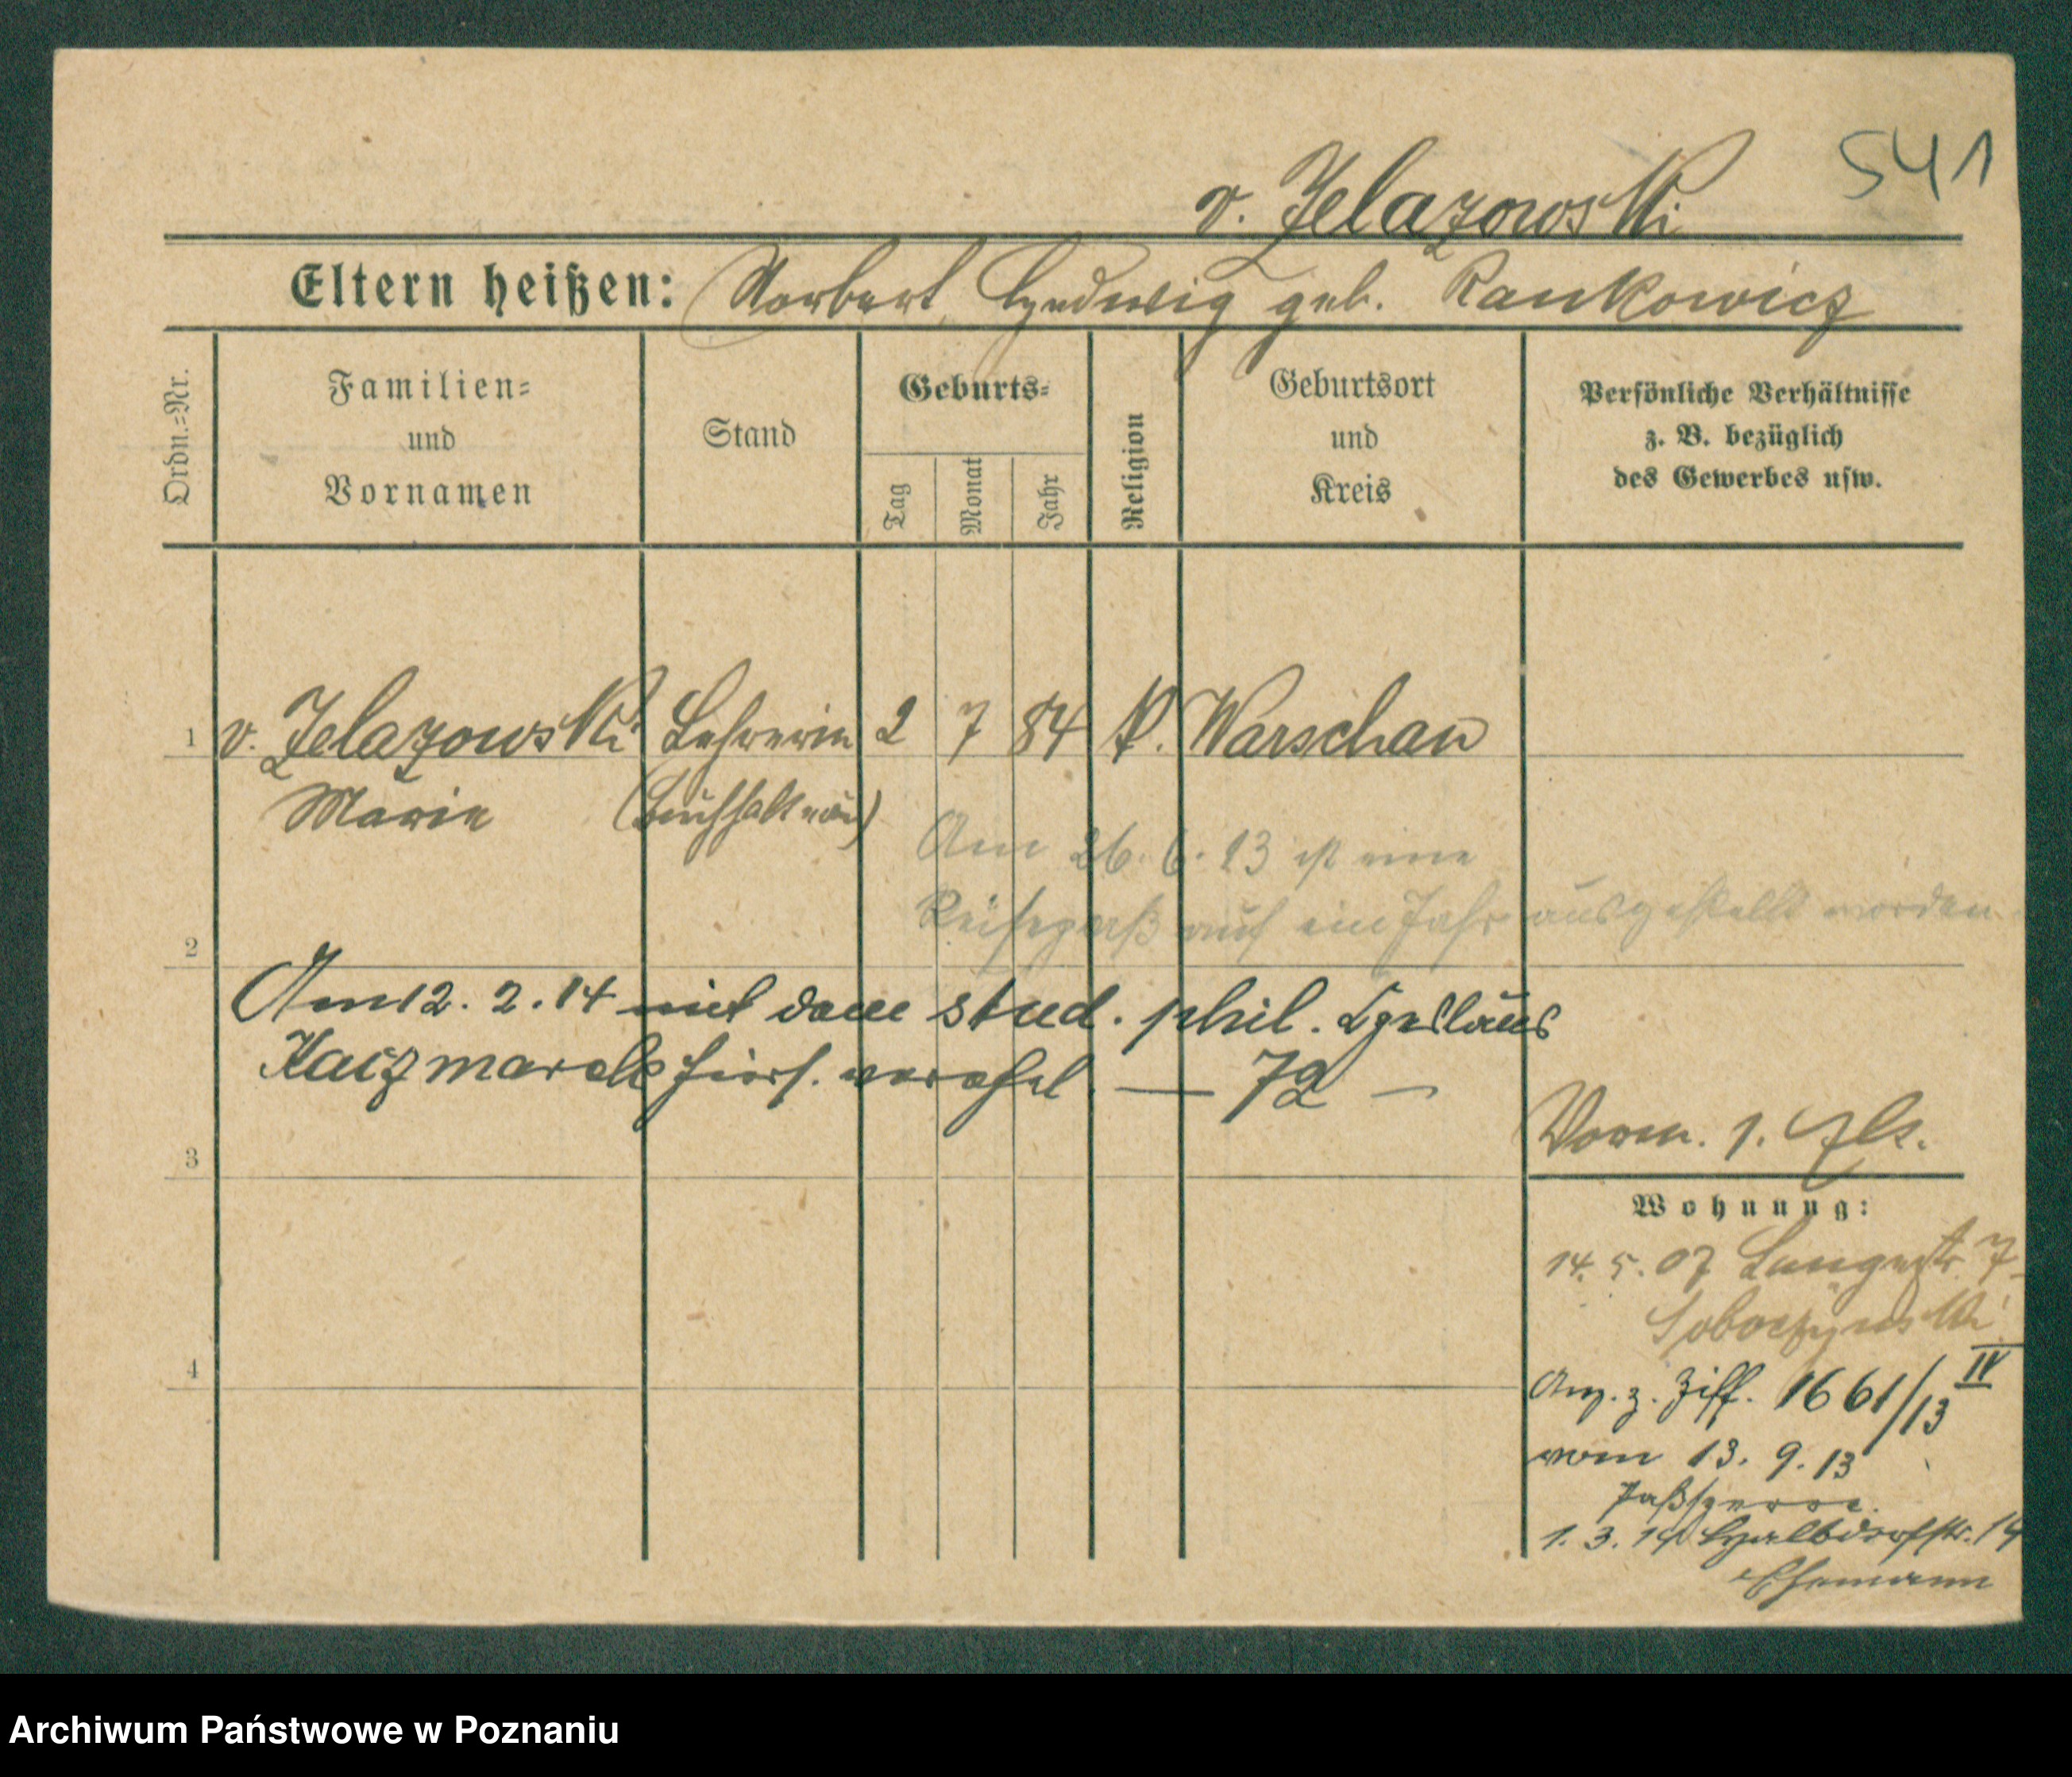 541
v. Zelazowski
Eltern heißen: Norbert, Hedwig geb. Rankowicz
Ordn.=Nr.
Familien=
und
Vornamen
Stand
Geburts=
Tag
Monat
Jahr
Religion
Geburtsort
und
Kreis
Persönliche Verhältnisse
z. B. bezüglich
des Gewerbes usw.
1 v. Zelazowski Lehrerin 2 7 84 k. Warschau
Marie (Buchhalterin)
Am 26. 6. 13 ist eine
Reisepaß auf ein Jahr ausgestellt worden
2
Am 12. 2. 14 mit dem stud. phil. Czeslaus
Kaczmarek hiers. verehel. — 72 —
3
Vorm. 1. Bl.
Wohnung:
14. 5. 07 Langestr. 7
Soboczynski
4
Anz. z. Ziff. 1661/13 IV
vom 13. 9. 13
Paßsperre.
1. 3. 14 14
Ehemann
Archiwum Państwowe w Poznaniu